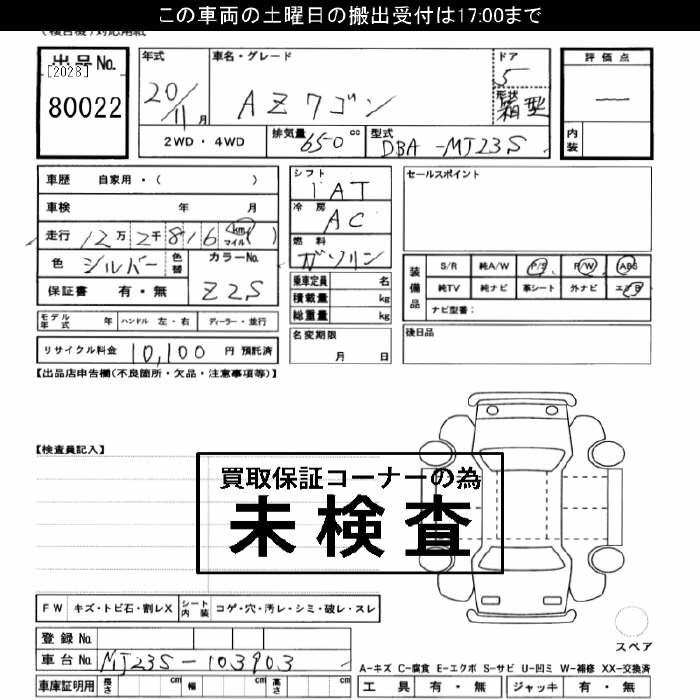 この車両の土曜日の搬出受付は17:00まで
出品No.
[2028]
80022
年式
20/11月
車名・グレード
AZワゴン
ドア
5
形状
箱型
評価点
—
内装
2WD・4WD
排気量 650 cc
型式 DBA-MJ23S
車歴 自家用・( )
車検 年 月
走行 12万2千816 (km マイル)
色 シルバー
色替
カラーNo.
Z2S
保証書 有・無
シフト
IAT
冷房
AC
燃料
ガソリン
乗車定員 名
積載量 kg
総重量 kg
セールスポイント
装備品
S/R 純A/W P/S P/W ABS
純TV 純ナビ 革シート 外ナビ エアB
ナビ型番:
モデル年式 年 ハンドル 左・右 ディーラー・並行
リサイクル料金 10,100 円 預託済
名変期限
月 日
後日品
【出品店申告欄(不良箇所・欠品・注意事項等)】
【検査員記入】
買取保証コーナーの為
未検査
FW キズ・トビ石・割レX シート内装 コゲ・穴・汚レ・シミ・破レ・スレ
登録No.
車台No. MJ23S-103903
スペア
A-キズ C-腐食 E-エクボ S-サビ U-凹ミ W-補修 XX-交換済
車庫証明用 長さ cm 幅 cm 高さ cm
工具 有・無 ジャッキ 有・無